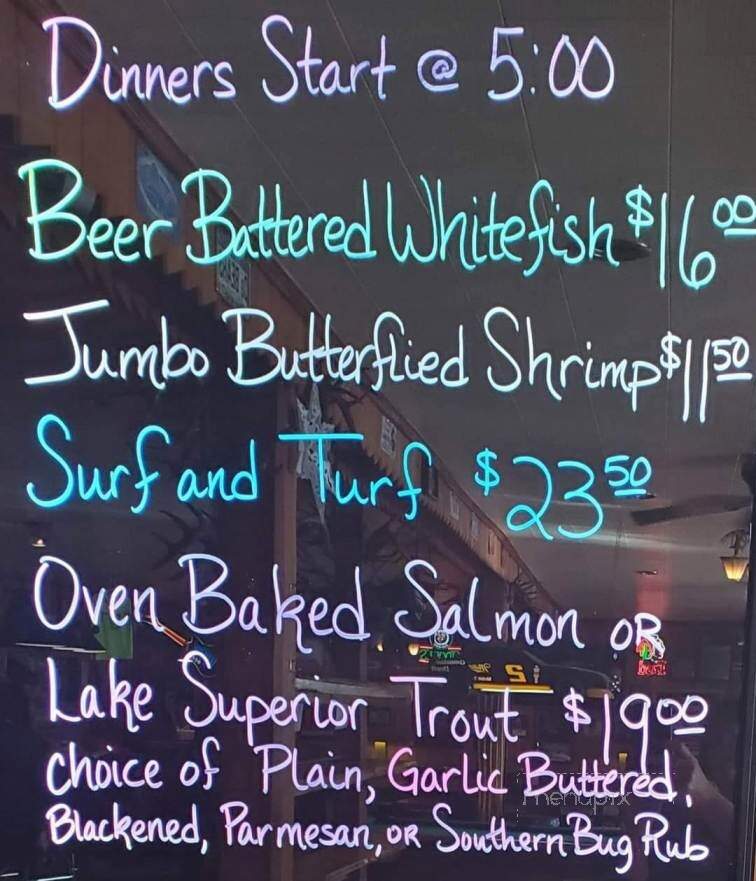 Dinners Start @ 5:00
Beer Battered Whitefish $16.00
Jumbo Butterflied Shrimp $11.50
Surf and Turf $23.50
Oven Baked Salmon OR
Lake Superior Trout $19.00
choice of Plain, Garlic Buttered,
Blackened, Parmesan, OR Southern Bug Rub
menupix